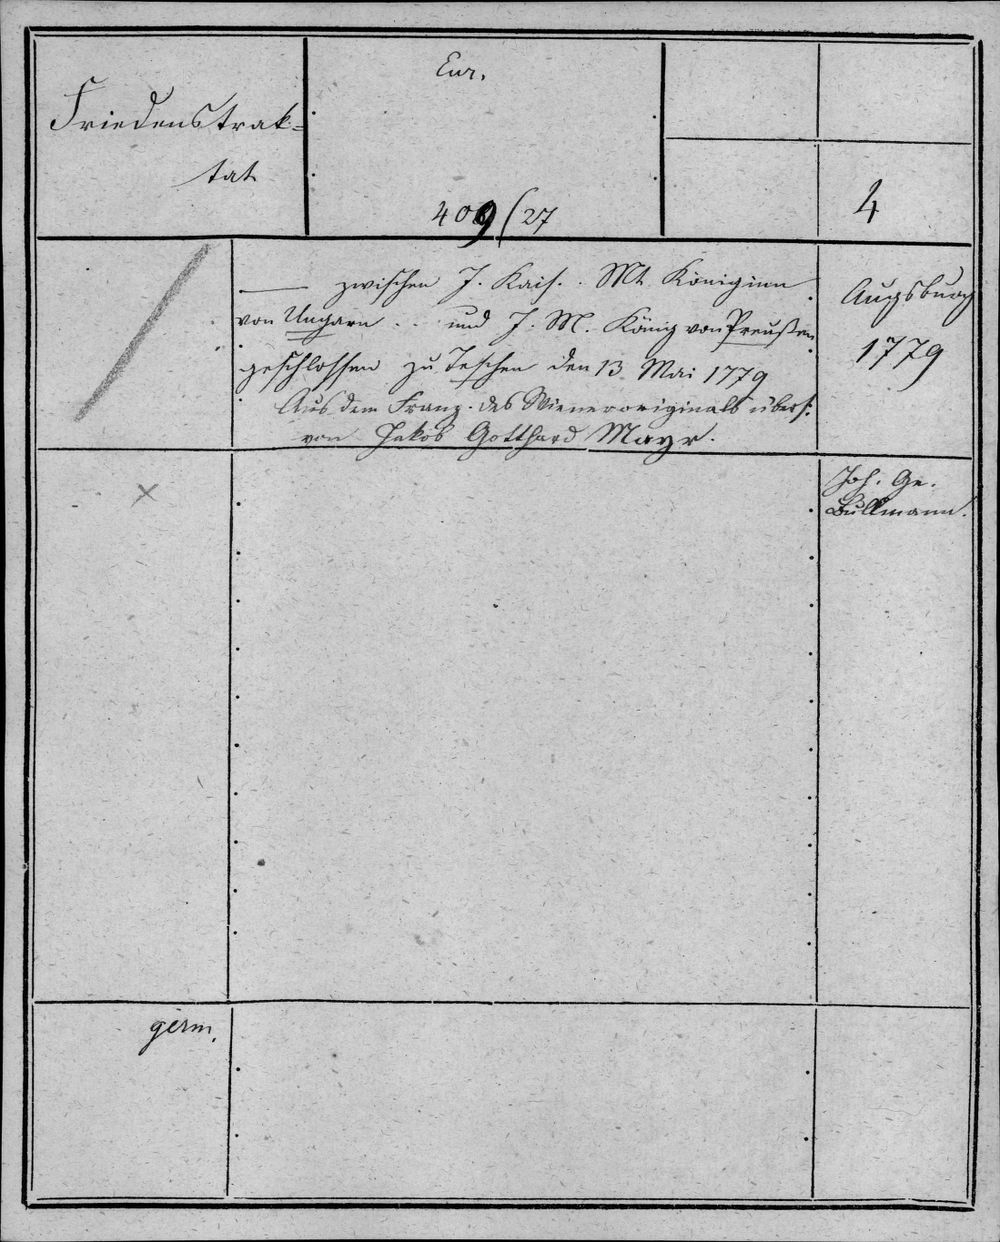 Friedenstrak=
tat
Eur.
409/27
4
— zwischen J. Kais. . Mt Königinn
von Ungarn . . und J. M. König von Preußen
geschlossen zu Teschen den 13 Mai 1779
Aus dem Franz. des Wieneroriginals übers:
von Jakob Gotthard Mayr.
Augsburg
1779
Joh. Ge.
Bullmann.
germ.